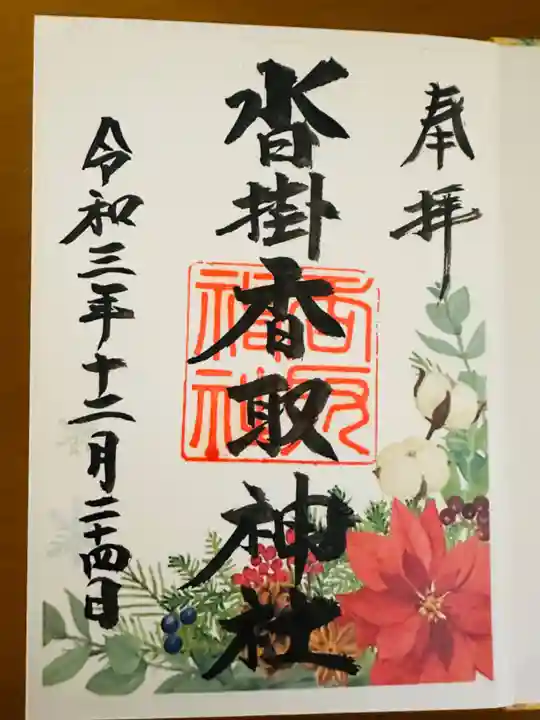 奉拝
沓掛香取神社
香取神社
令和三年十二月二十四日